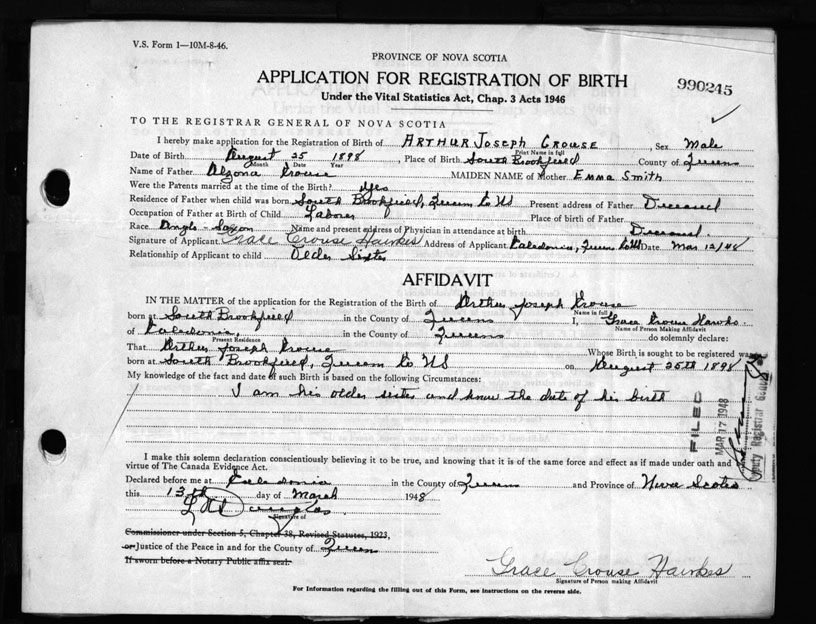 V.S. Form 1—10M-8-46.
PROVINCE OF NOVA SCOTIA
APPLICATION FOR REGISTRATION OF BIRTH
990245
Under the Vital Statistics Act, Chap. 3 Acts 1946
TO THE REGISTRAR GENERAL OF NOVA SCOTIA
I hereby make application for the Registration of Birth of ARTHUR JOSEPH CROUSE, Sex Male
Print Name in full
Date of Birth August 25 1898, Place of Birth South Brookfield County of Queens
Month Date Year
Name of Father Alzona Crouse MAIDEN NAME of Mother EMMA SMITH
Were the Parents married at the time of the Birth? Yes
Residence of Father when child was born South Brookfield, Queens Co NS Present address of Father Deceased
Occupation of Father at Birth of Child Laborer Place of birth of Father
Race Anglo-Saxon Name and present address of Physician in attendance at birth Deceased.
Signature of Applicant Grace Crouse Hawkes Address of Applicant Caledonia, Queens Co NS Date Mar 12/48
Relationship of Applicant to child Older Sister
AFFIDAVIT
IN THE MATTER of the application for the Registration of the Birth of Arthur Joseph Crouse
Name in full
born at South Brookfield in the County of Queens I, Grace Crouse Hawkes
Name of Person Making Affidavit
of Caledonia, in the County of Queens do solemnly declare:
Present Residence
That Arthur Joseph Crouse Whose Birth is sought to be registered was
born at South Brookfield, Queens Co NS on August 25th 1898
My knowledge of the fact and date of such Birth is based on the following Circumstances:
I am his older sister and know the date of his birth
FILED
MAR 17 1948
Deputy Registrar General
I make this solemn declaration conscientiously believing it to be true, and knowing that it is of the same force and effect as if made under oath and
virtue of The Canada Evidence Act.
Declared before me at Caledonia in the County of Queens and Province of Nova Scotia
this 13th day of March 1948
Signature of
Commissioner under Section 5, Chapter 38, Revised Statutes, 1923,
or Justice of the Peace in and for the County of Queens
If sworn before a Notary Public affix seal.
Grace Crouse Hawkes
Signature of Person making Affidavit
For Information regarding the filling out of this Form, see instructions on the reverse side.